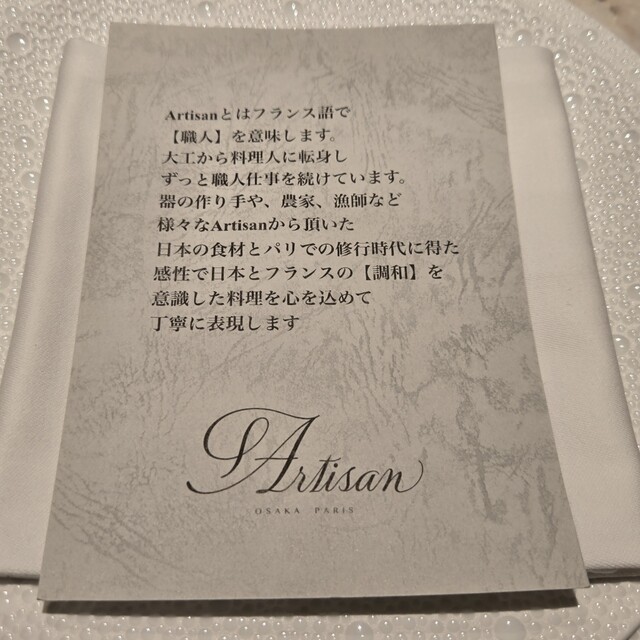 Artisanとはフランス語で
【職人】を意味します。
大工から料理人に転身し
ずっと職人仕事を続けています。
器の作り手や、農家、漁師など
様々なArtisanから頂いた
日本の食材とパリでの修行時代に得た
感性で日本とフランスの【調和】を
意識した料理を心を込めて
丁寧に表現します
L'Artisan
OSAKA PARIS